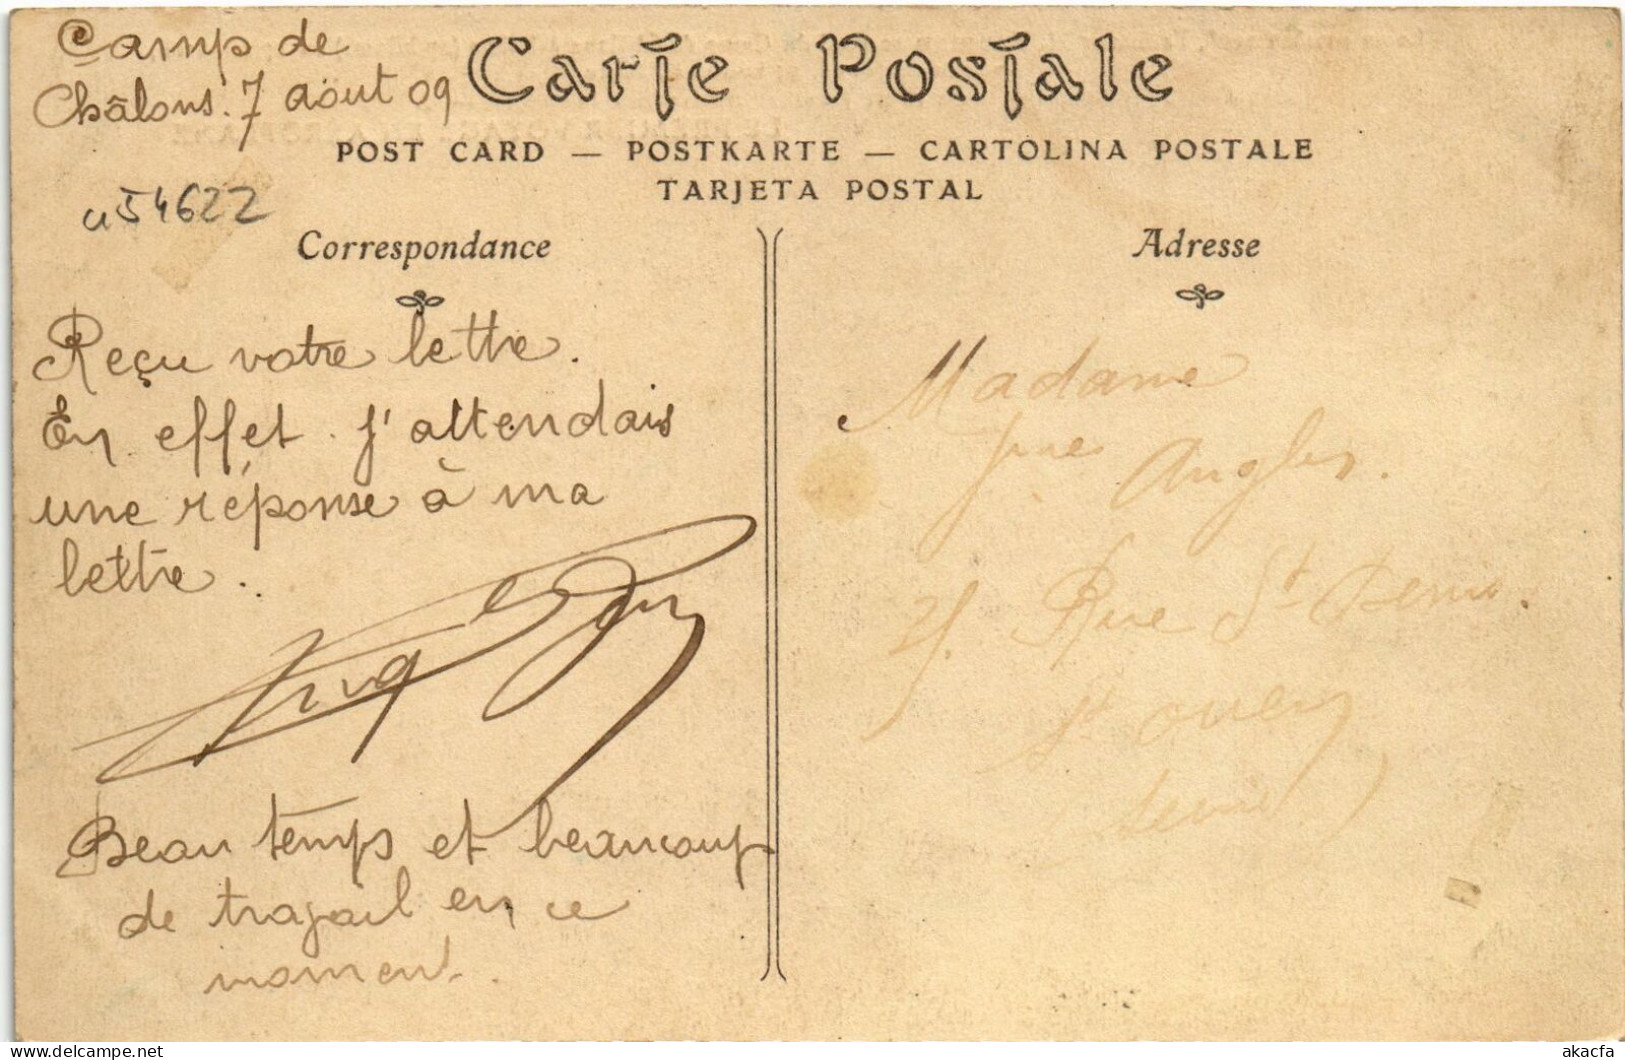 Camp de
Châlons. 7 août 09
Carte Postale
POST CARD — POSTKARTE — CARTOLINA POSTALE
TARJETA POSTAL
u54622
Correspondance
Reçu votre lettre.
En effet. j'attendais
une réponse à ma
lettre.
Beau temps et beaucoup
de travail en ce
moment.
Adresse
Madame
Angles.
Rue St Denis.
St ouen
Seine
akacfa